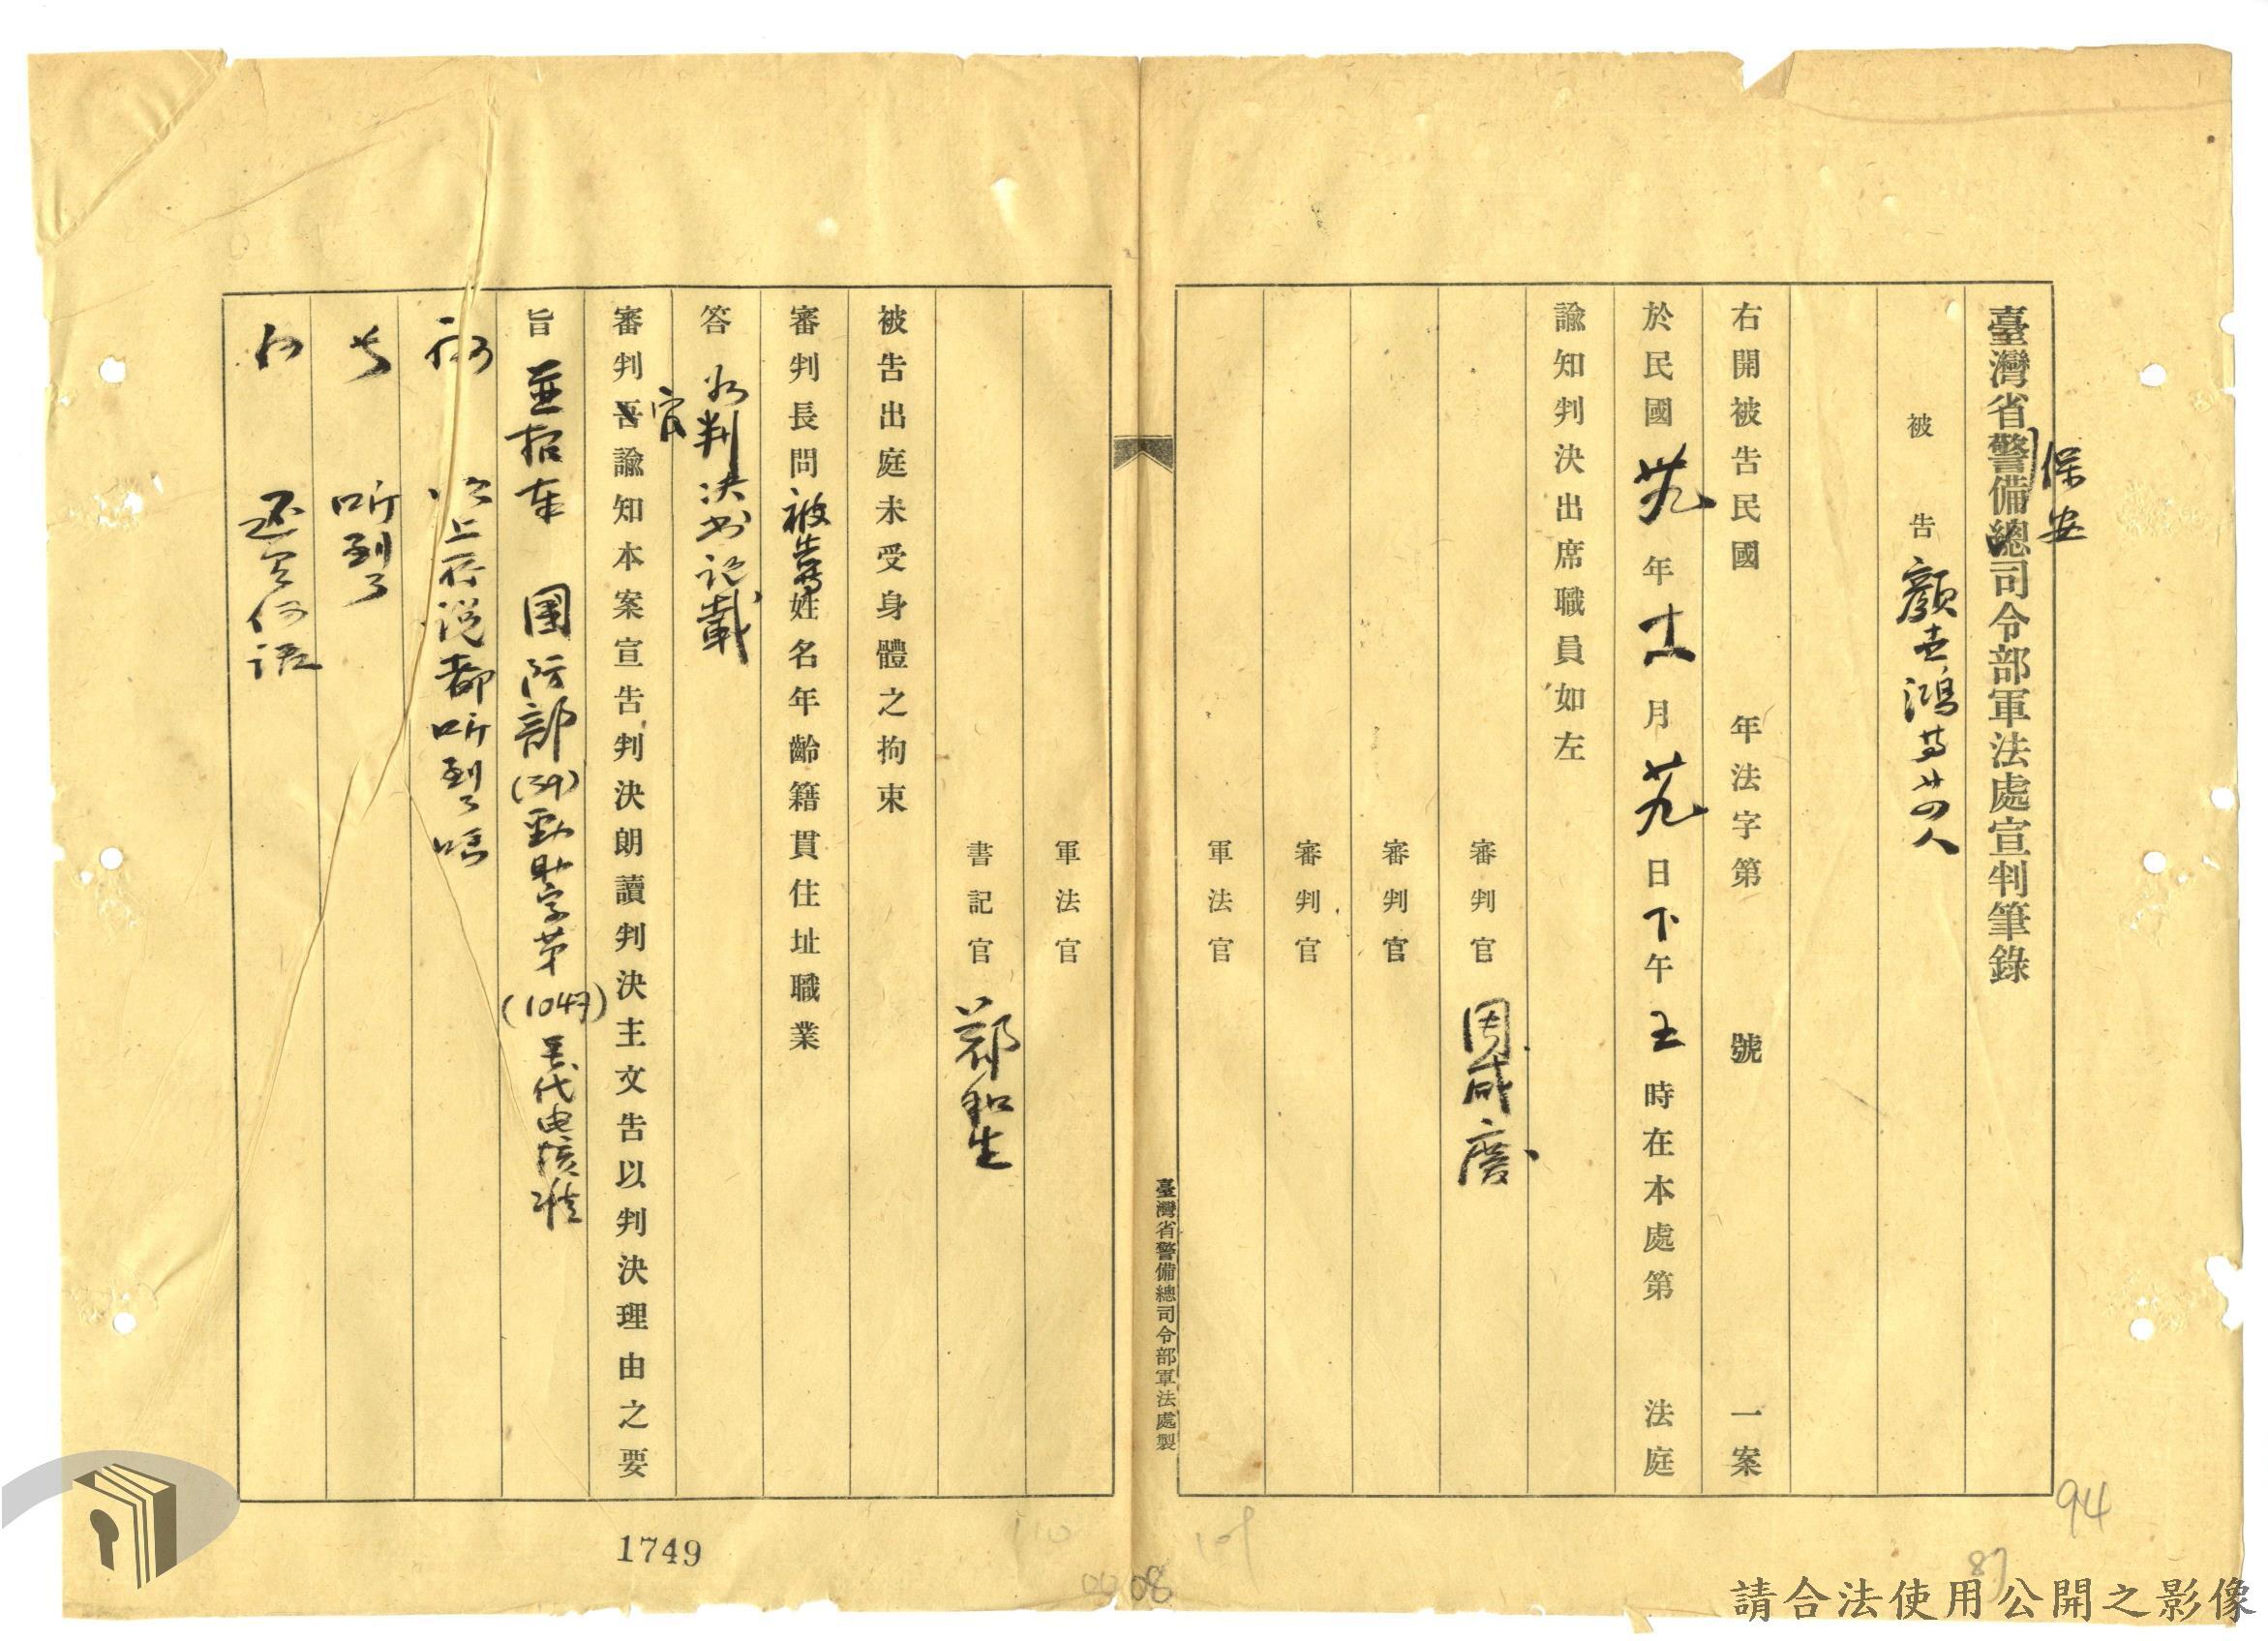 臺灣省警備總司令部軍法處宣判筆錄
保安
被告 顏世鴻等廿四人
右開被告民國 年法字第 號 一案
於民國卅九年十一月廿九日下午五時在本處第 法庭
諭知判決出席職員如左
審判官 周咸慶
審判官
審判官
軍法官
臺灣省警備總司令部軍法處製
軍法官
書記官 鄭和生
被告出庭未受身體之拘束
審判長問被告等姓名年齡籍貫住址職業
答 如判決書記載
審判官諭知本案宣告判決朗讀判決主文告以判決理由之要
旨並指本 國防部(39)勁助字第(1047)号代电核准
問 以上所說都听到了嗎
答 听到了
問 还有何話
1749
94
87
109
110
08
請合法使用公開之影像